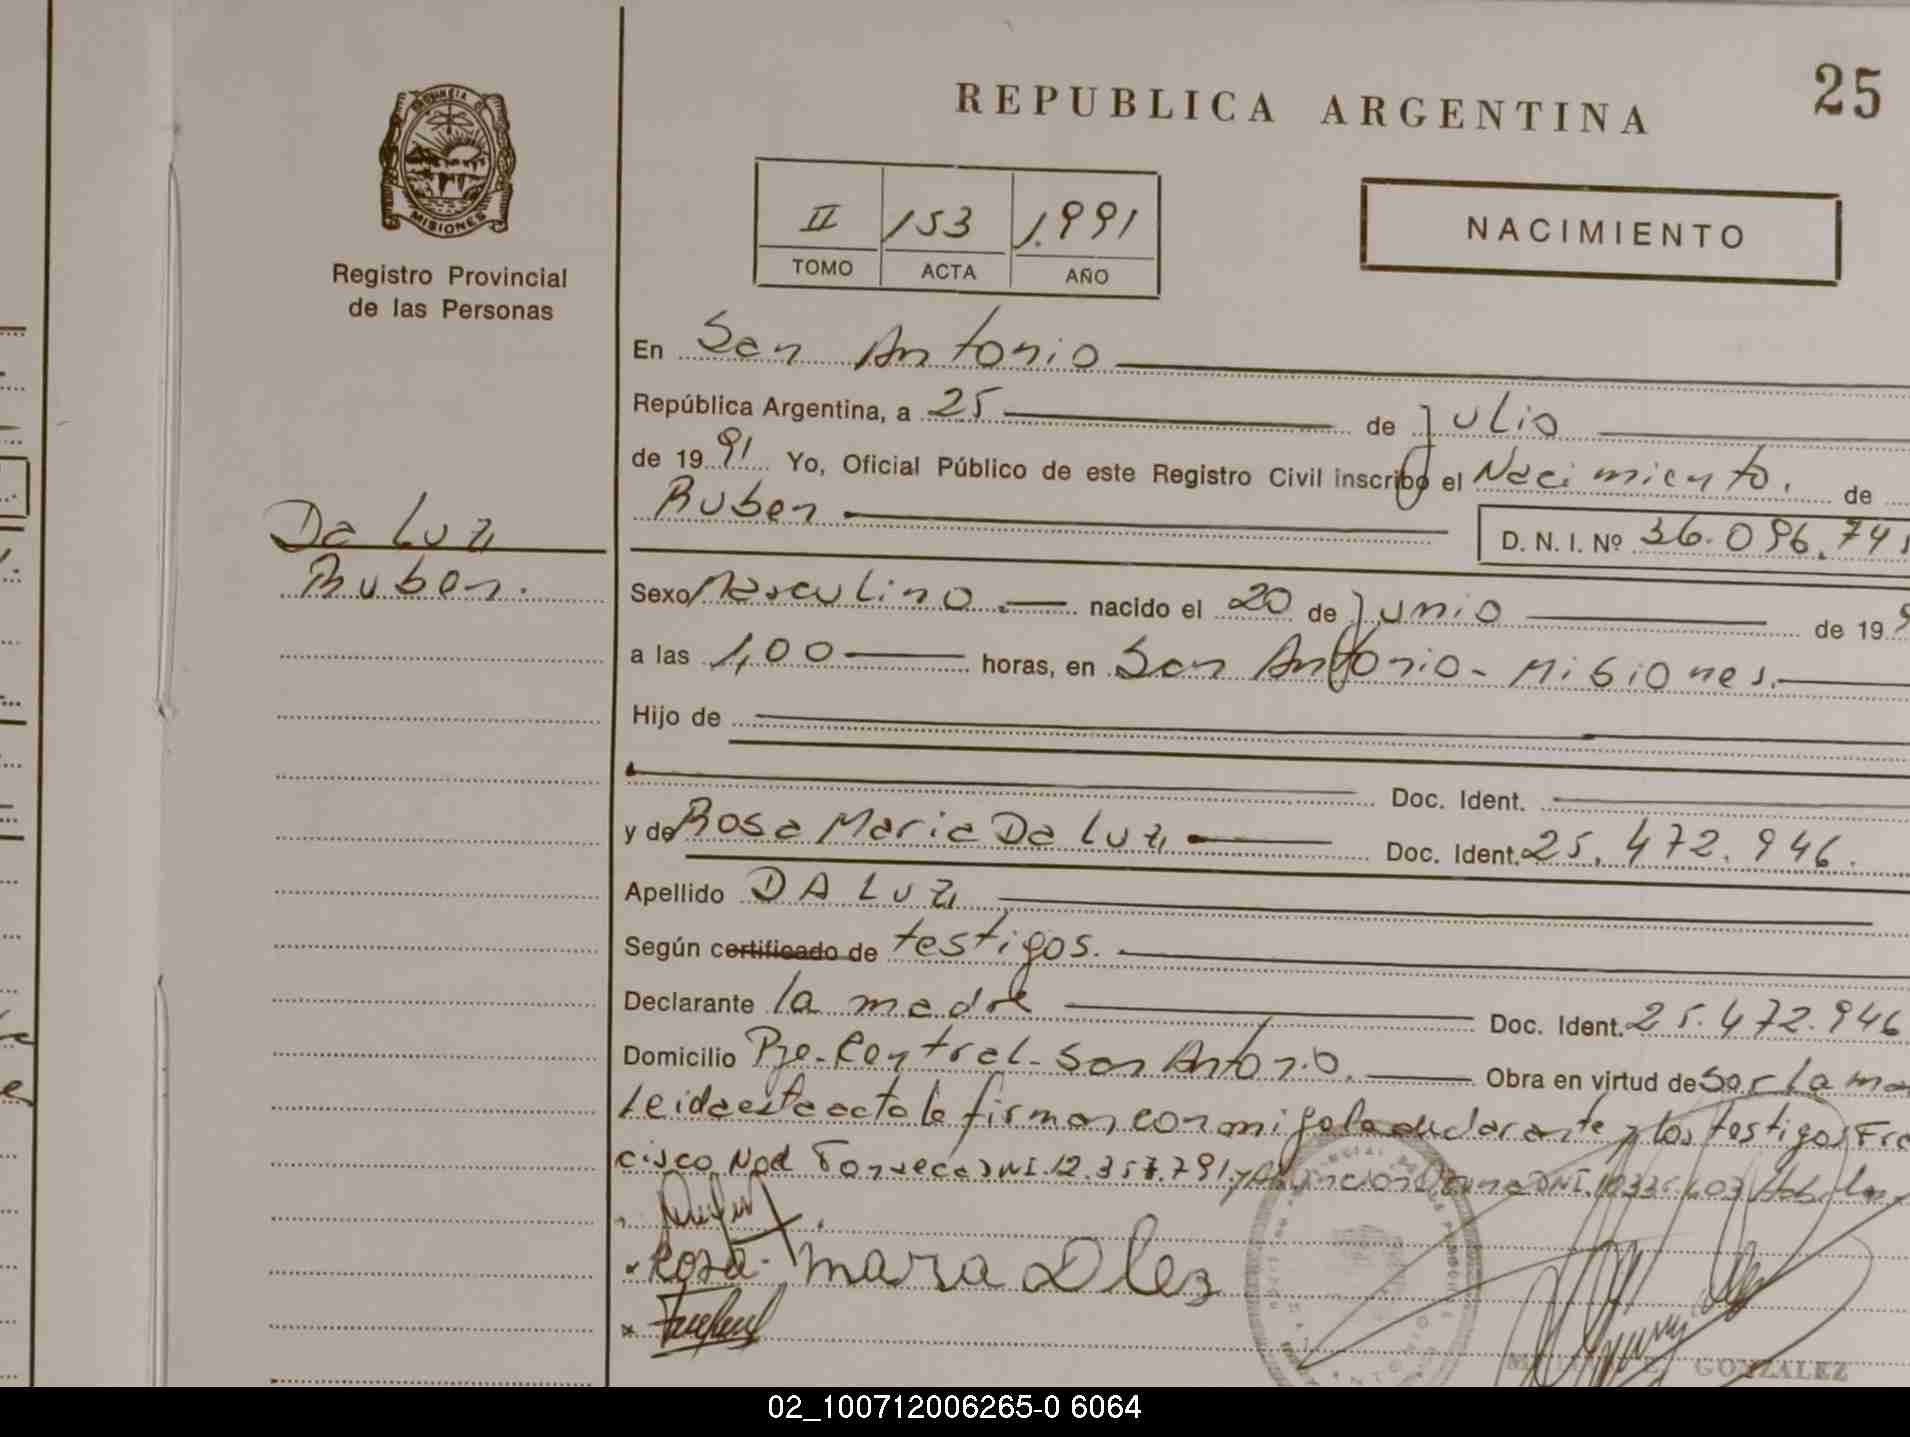 25
REPUBLICA ARGENTINA
PROVINCIA DE
MISIONES
Registro Provincial
de las Personas
II 153 1.991
TOMO ACTA AÑO
NACIMIENTO
En San Antonio
República Argentina, a 25 de Julio
de 1991 Yo, Oficial Público de este Registro Civil inscribo el Nacimiento. de
Ruben
D. N. I. Nº 36.096.74
Da Luz
Ruben.
Sexo Masculino.— nacido el 20 de Junio de 199
a las 1,00 horas, en San Antonio - Misiones.
Hijo de
Doc. Ident.
y de Rosa Maria Da Luz Doc. Ident. 25.472.946.
Apellido DA LUZ
Según certificado de testigos.
Declarante la madre Doc. Ident. 25.472.946
Domicilio Pje. Central - San Antonio. Obra en virtud de Ser la ma
Leida esta acta la firman conmigo la declarante y los testigos Fra
cisco Noel Fonseca DNI. 12.357.791 y
Rosa Mara D Luz
GONZALEZ
02_100712006265-0 6064